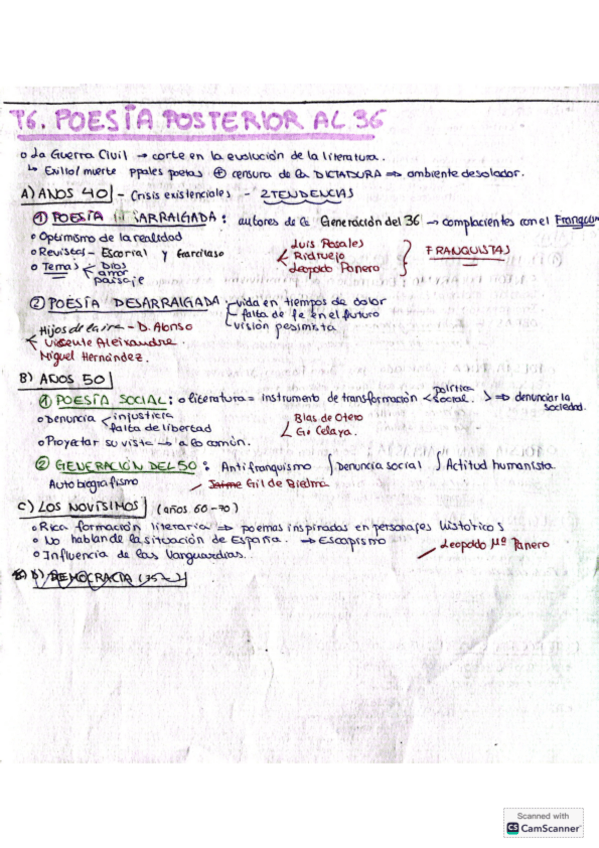 T6. POESÍA POSTERIOR AL 36
o La Guerra Civil → corte en la evolución de la literatura.
↳ Exilio/muerte ppales poetas ⊕ censura de la DICTADURA ⇒ ambiente desolador.
A) AÑOS 40 - Crisis existenciales - 2 TENDENCIAS
① POESÍA ARRAIGADA: autores de la Generación del 36 → complacientes con el
o Optimismo de la realidad
o Revistas - Escorial y Garcilaso
o Temas Dios
amor
paisaje
Luis Rosales
Ridruejo
Leopoldo Panero
FRANQUISTAS
② POESÍA DESARRAIGADA
vida en tiempos de dolor
falta de fe en el futuro
visión pesimista
Hijos de la ira - D. Alonso
Vicente Aleixandre.
Miguel Hernández.
B) AÑOS 50
① POESÍA SOCIAL: o literatura = instrumento de transformación política
social. ⇒ denunciar la
sociedad.
o Denuncia injusticia
falta de libertad
o Proyectar su vista → a lo común.
Blas de Otero
Celaya.
② GENERACIÓN DEL 50: Antifranquismo Denuncia social Actitud humanista
Autobiografismo Jaime Gil de Biedma
C) LOS NOVÍSIMOS (años 60-70)
o Rica formación literaria ⇒ poemas inspirados en personajes históricos
o No hablan de la situación de España. → Escapismo
o Influencia de las Vanguardias.
Leopoldo Mª Panero
D) DEMOCRACIA
Scanned with
CS CamScanner